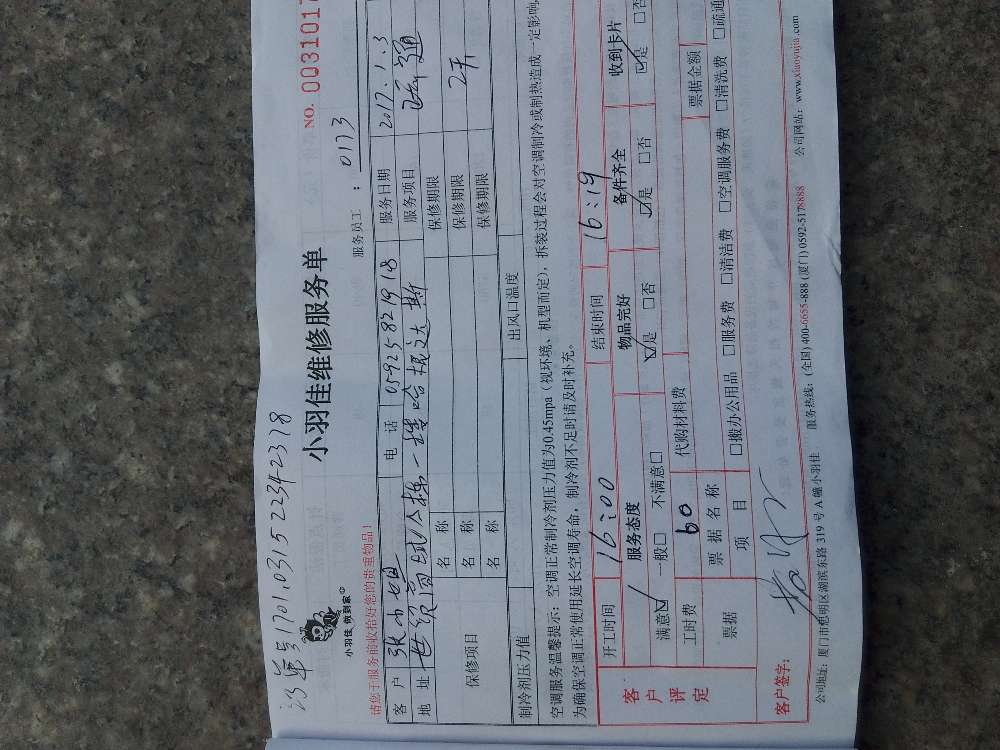 订单号1701031522342318
小羽佳 例到家
小羽佳维修服务单
NO. 0031017
请您于服务前收拾好您的贵重物品!
服务员工: 0173
客 户 张小姐 电 话 05925821918 服务日期 2017.1.3
地 址 服务项目
保修项目 名 称 保修期限
名 称 保修期限 2天
名 称 保修期限
制冷剂压力值 出风口温度
空调服务温馨提示: 空调正常制冷剂压力值为0.45mpa(视环境、机型而定), 拆装过程会对空调制冷或制热造成一定影响,
为确保空调正常使用延长空调寿命, 制冷剂不足时请及时补充。
客户评定
开工时间 16:00 结束时间 16:19
服务态度 物品完好 备件齐全 收到卡片
满意☑ 一般□ 不满意□ ☑是 □否 ☑是 □否 ☑是 □否
工时费 60 代购材料费
票据 票据名称 票据金额
项 目 □搬办公用品 □服务费 □清洁费 □空调服务费 □清洗费 □疏通
客户签字:
公司地址: 厦门市思明区湖滨东路 319 号 A 幢小羽佳 服务热线: (全国) 400-6655-888 (厦门) 0592-5178888 公司网站: www.xiaoyujia.com